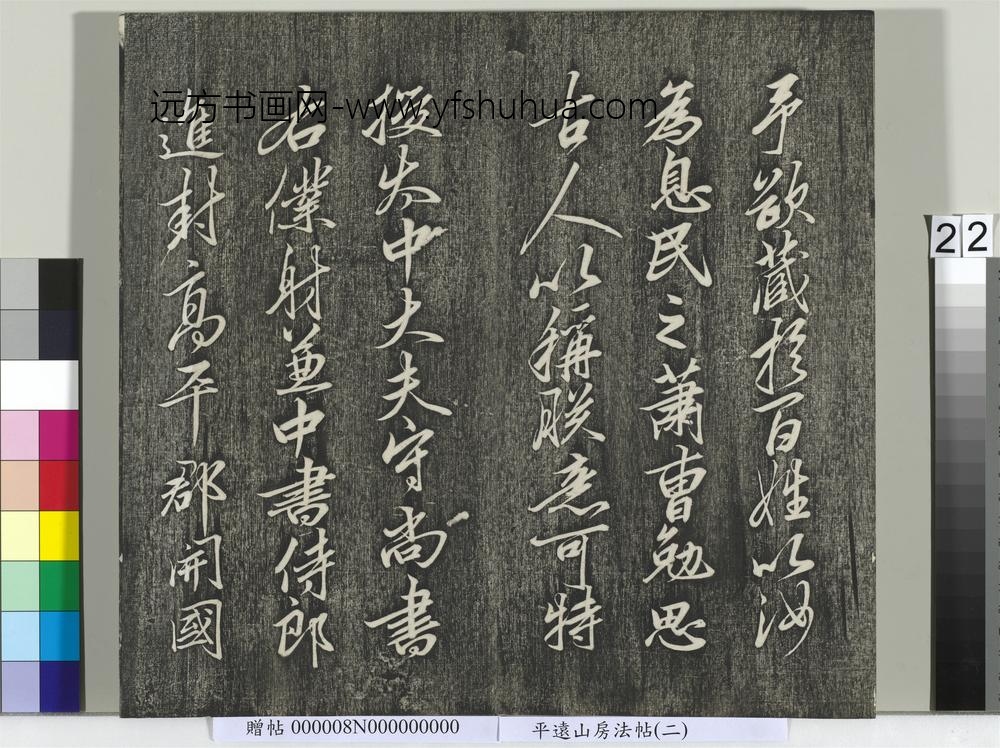 予欲藏於百姓以汝
為息民之蕭曹勉思
古人以稱朕意可特
授太中大夫守尚書
右僕射兼中書侍郎
進封高平郡開國
远方书画网-www.yfshuhua.com
22
贈帖 000008N000000000
平遠山房法帖(二)